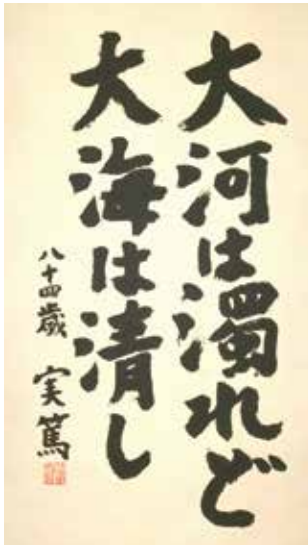 大河は濁れど
大海は清し
八十四歳 実篤